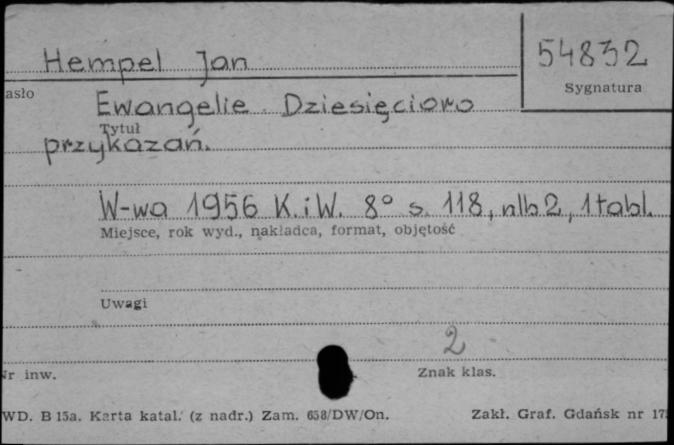 Hempel Jan
54832
Sygnatura
asło
Ewangelie. Dziesięcioro
Tytuł
przykazań.
W-wa 1956 K.iW. 8° s. 118, nlb 2, 1 tabl.
Miejsce, rok wyd., nakładca, format, objętość
Uwagi
2
Nr inw.
Znak klas.
WD. B 15a. Karta katal. (z nadr.) Zam. 658/DW/On.
Zakł. Graf. Gdańsk nr 17